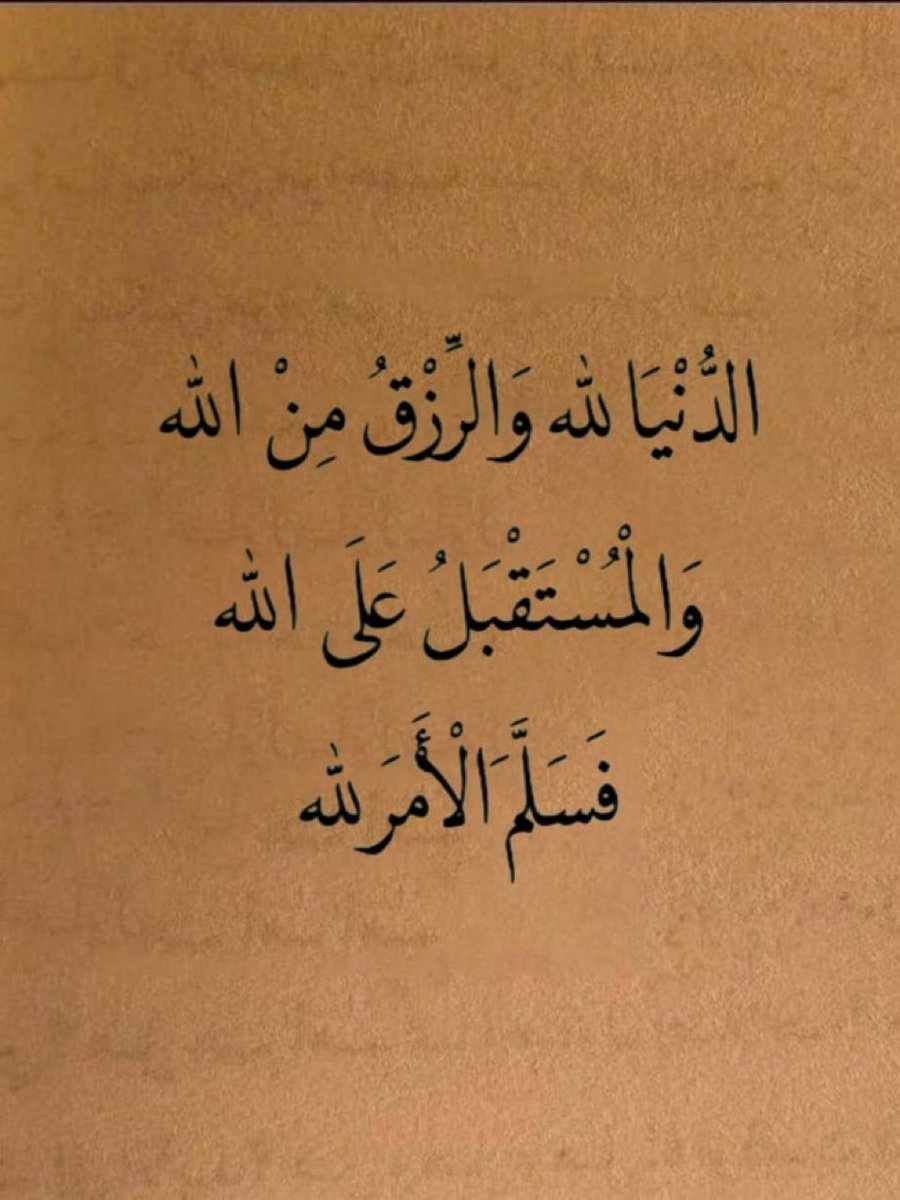 الدُّنْيَا لله وَالرِّزْقُ مِنْ الله
وَالْمُسْتَقْبَلُ عَلَى الله
فَسَلَّمَ الْأَمَرَ لله